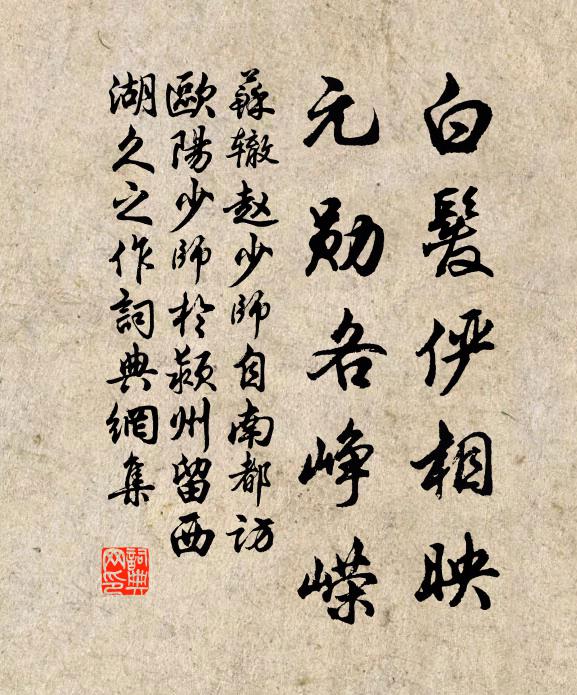 白髮俨相映
元勋各峥嵘
蘇辙赵少师自南都访
歐陽少师於颍州留西
湖久之作詞典網集
詞典网印